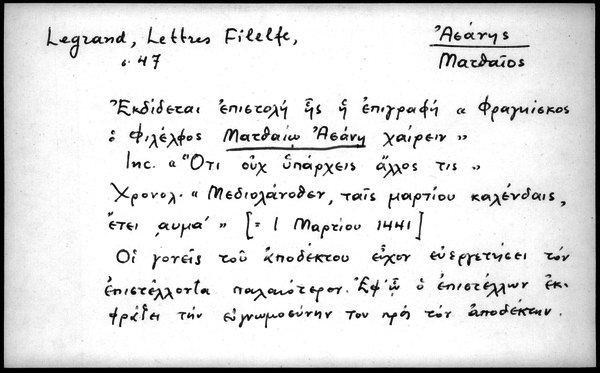 Legrand, Lettres Filelfe,
σ. 47
Ἀσάνης
Ματθαῖος
Ἐκδίδεται ἐπιστολή ἧς ἡ ἐπιγραφή « Φραγκίσκος
ὁ Φιλέλφος Ματθαίῳ Ἀσάνῃ χαίρειν »
Inc. « Ὅτι οὐχ ὑπάρχεις ἄλλος τις »
Χρονολ. « Μεδιολάνοθεν, ταῖς μαρτίου καλένδαις,
ἔτει ͵αυμα´ » [= 1 Μαρτίου 1441]
Οἱ γονεῖς τοῦ ἀποδέκτου εἶχον εὐεργετήσει τόν
ἐπιστέλλοντα παλαιότερον. Ἐφ' ᾧ ὁ ἐπιστέλλων ἐκ-
φράζει τήν εὐγνωμοσύνην του πρός τόν ἀποδέκτην.